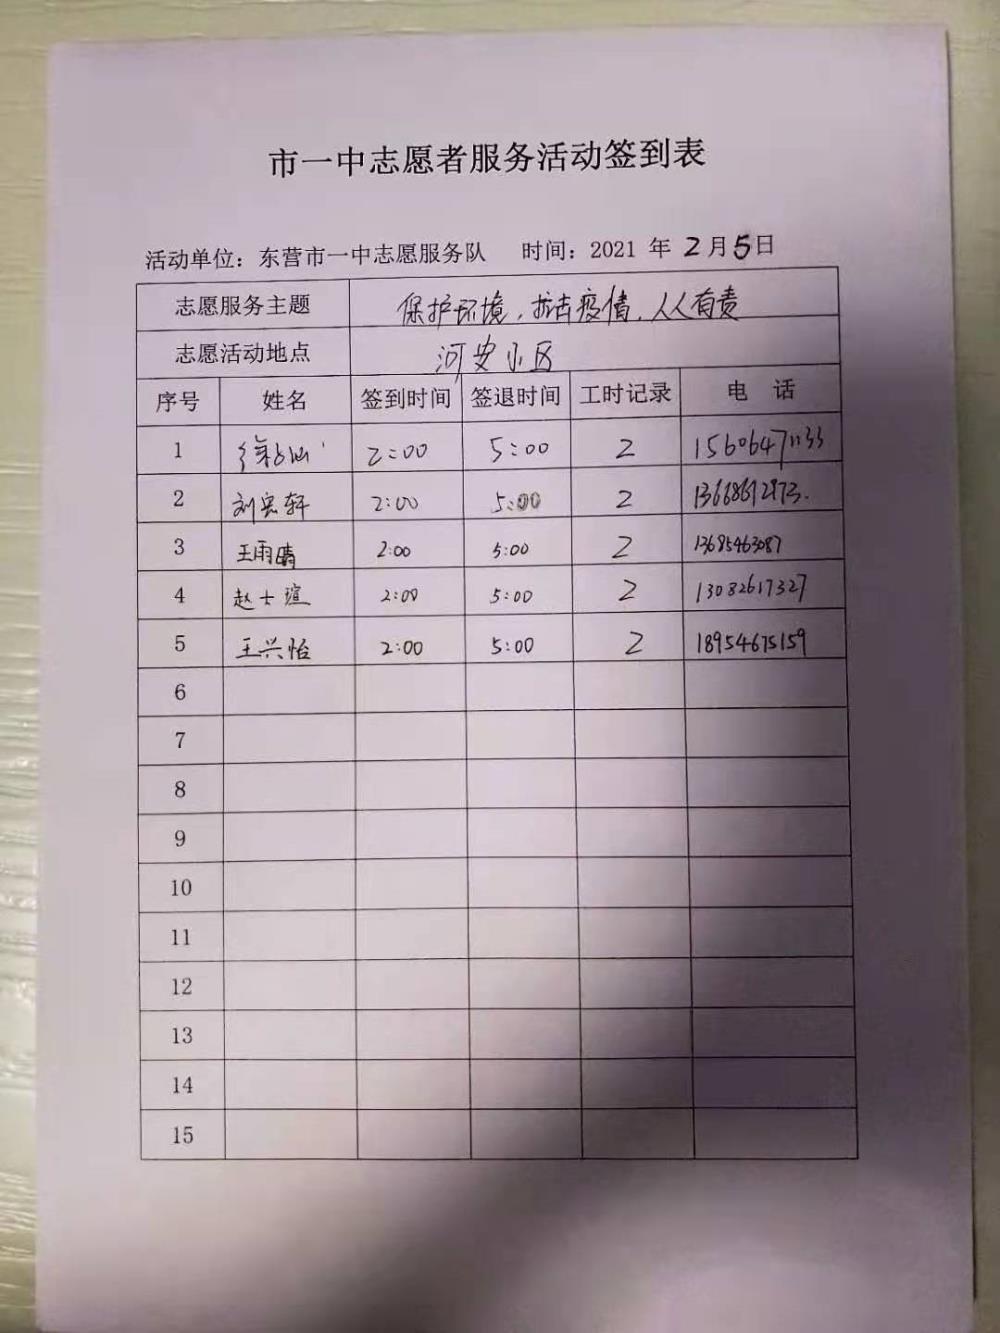 市一中志愿者服务活动签到表
活动单位：东营市一中志愿服务队 时间：2021 年 2 月 5 日
志愿服务主题 保护环境，抗击疫情，人人有责
志愿活动地点 河安小区
序号 姓名 签到时间 签退时间 工时记录 电 话
1 2:00 5:00 2 15606471133
2 刘宏轩 2:00 5:00 2
3 王雨晴 2:00 5:00 2 13685463087
4 赵士瑄 2:00 5:00 2 13082617327
5 王兴怡 2:00 5:00 2 18954675159
6
7
8
9
10
11
12
13
14
15